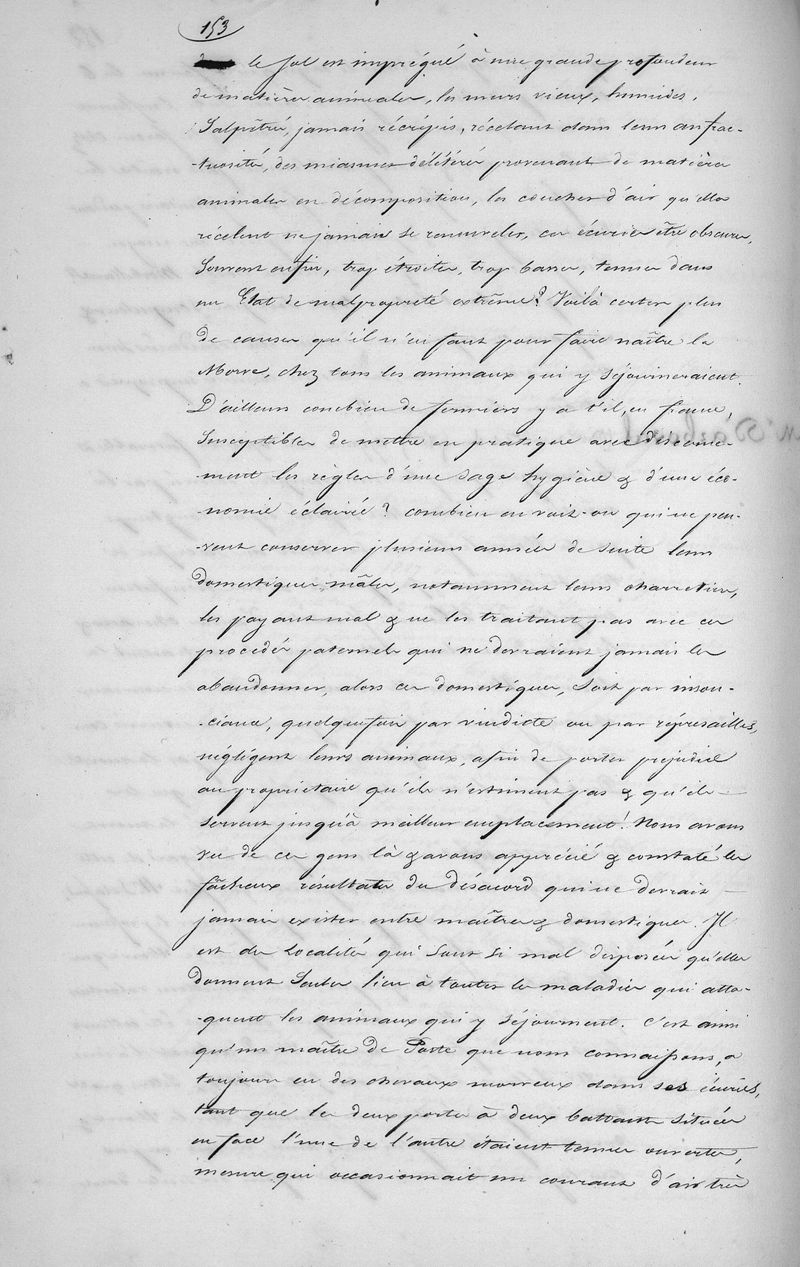 153
le sol est imprégné à une grande profondeur
de matières animales, les murs vieux, humides,
Salpêtrés, jamais récrépis, récelant dans leurs anfrac-
-tuosités, des miasmes délétères provenant de matières
animales en décomposition, les couches d'air qu'elles
récelent ne jamais se renouveler, ces écuries être obscures,
Souvent enfin, trop étroites, trop basses, tenues dans
un Etat de malpropreté extrême? Voilà certes plus
de causes qu'il n'en faut pour faire naître la
Morve, chez tous les animaux qui y séjourneraient.
D'ailleurs combien de fermiers y a t'il, en france,
Susceptibles de mettre en pratique avec discerne-
-ment les règles d'une sage hygiène & d'une éco-
-nomie éclairée? combien en voit-on qui ne peu-
-vent conserver plusieurs années de suite leurs
domestiques mâles, notamment leurs charretiers,
les payant mal & ne les traitant pas avec ces
procédés paternels qui ne devraient jamais les
abandonner, alors ces domestiques, soit par insou-
-ciance, quelquefois par vindicte ou par représailles,
négligent leurs animaux, afin de porter préjudice
au propriétaire qu'ils n'estiment pas & qu'ils
servent jusqu'à meilleur emplacement! Nous avons
vu de ces gens là & avons apprécié & constaté les
fâcheux résultats du désacord qui ne devrait
jamais exister entre maîtres & domestiques. Il
est des localités qui sont si mal disposées qu'elles
donnent Seules lieu à toutes les maladies qui atta-
-quent les animaux qui y séjournent. C'est ainsi
qu'un maître de Poste que nous connaissons, a
toujours eu des chevaux morveux dans ses écuries,
tant que les deux portes à deux battants situées
en face l'une de l'autre étaient tenues ouvertes,
mesure qui occasionnait un courant d'air très